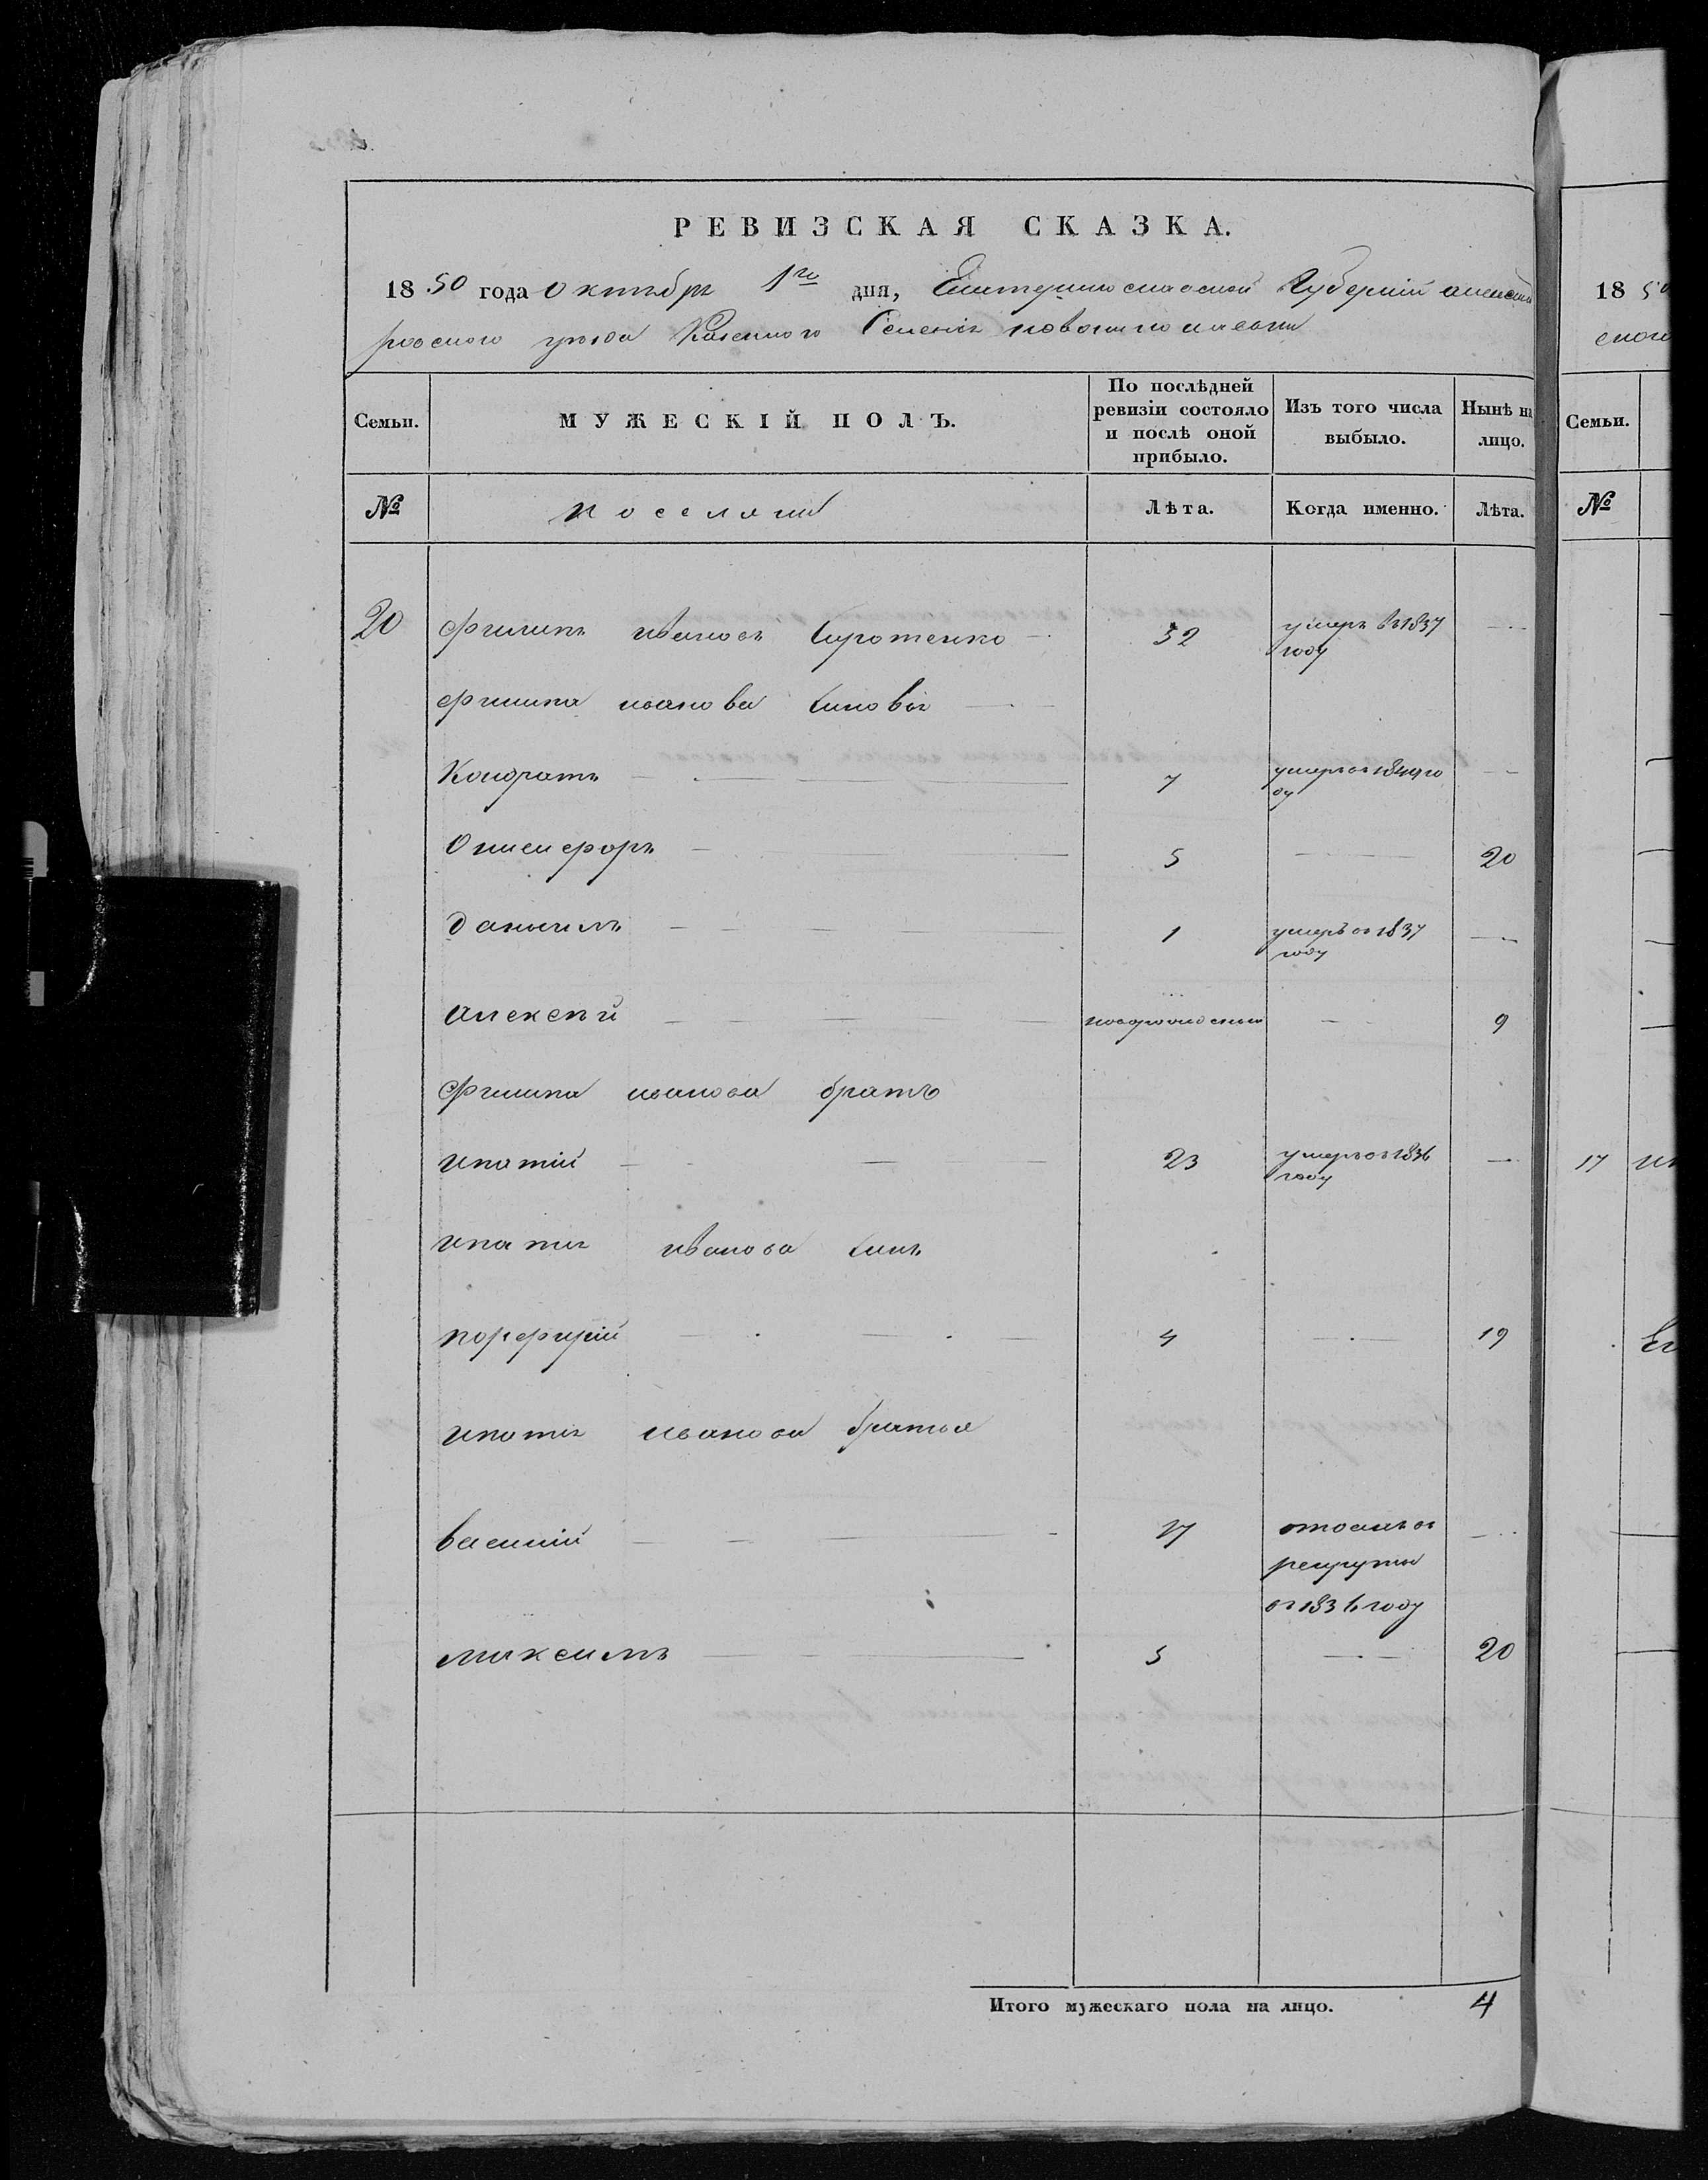 РЕВИЗСКАЯ СКАЗКА.
1850 года октября 1го дня, Екатеринославской Губерніи александ
ровского уезда Казенного Селенія новониколаевки
Семьи.
МУЖЕСКІЙ ПОЛЪ.
По послѣдней ревизіи состояло и послѣ оной прибыло.
Изъ того числа выбыло.
Нынѣ на лицо.
№
поселяни
Лѣта.
Когда именно.
Лѣта.
20 Филипъ ивановъ Сиротенко 32 умеръ въ 1837 году
филипа иванова синовья
Кондратъ 7 умеръ въ го ду
Онисифоръ 5 20
даниилъ 1 умеръ въ 1837 году
алексѣй новорожденый 9
Филипа иванова братъ
ипатій 23 умеръ въ 1836 году
ипатія иванова синъ
порфирій 4 19
ипатія иванова братья
василій 17 отданъ въ
рекруты
въ 1836 году
максимъ 5 20
Итого мужескаго пола на лицо. 4
1850
ского
Семьи.
№
17